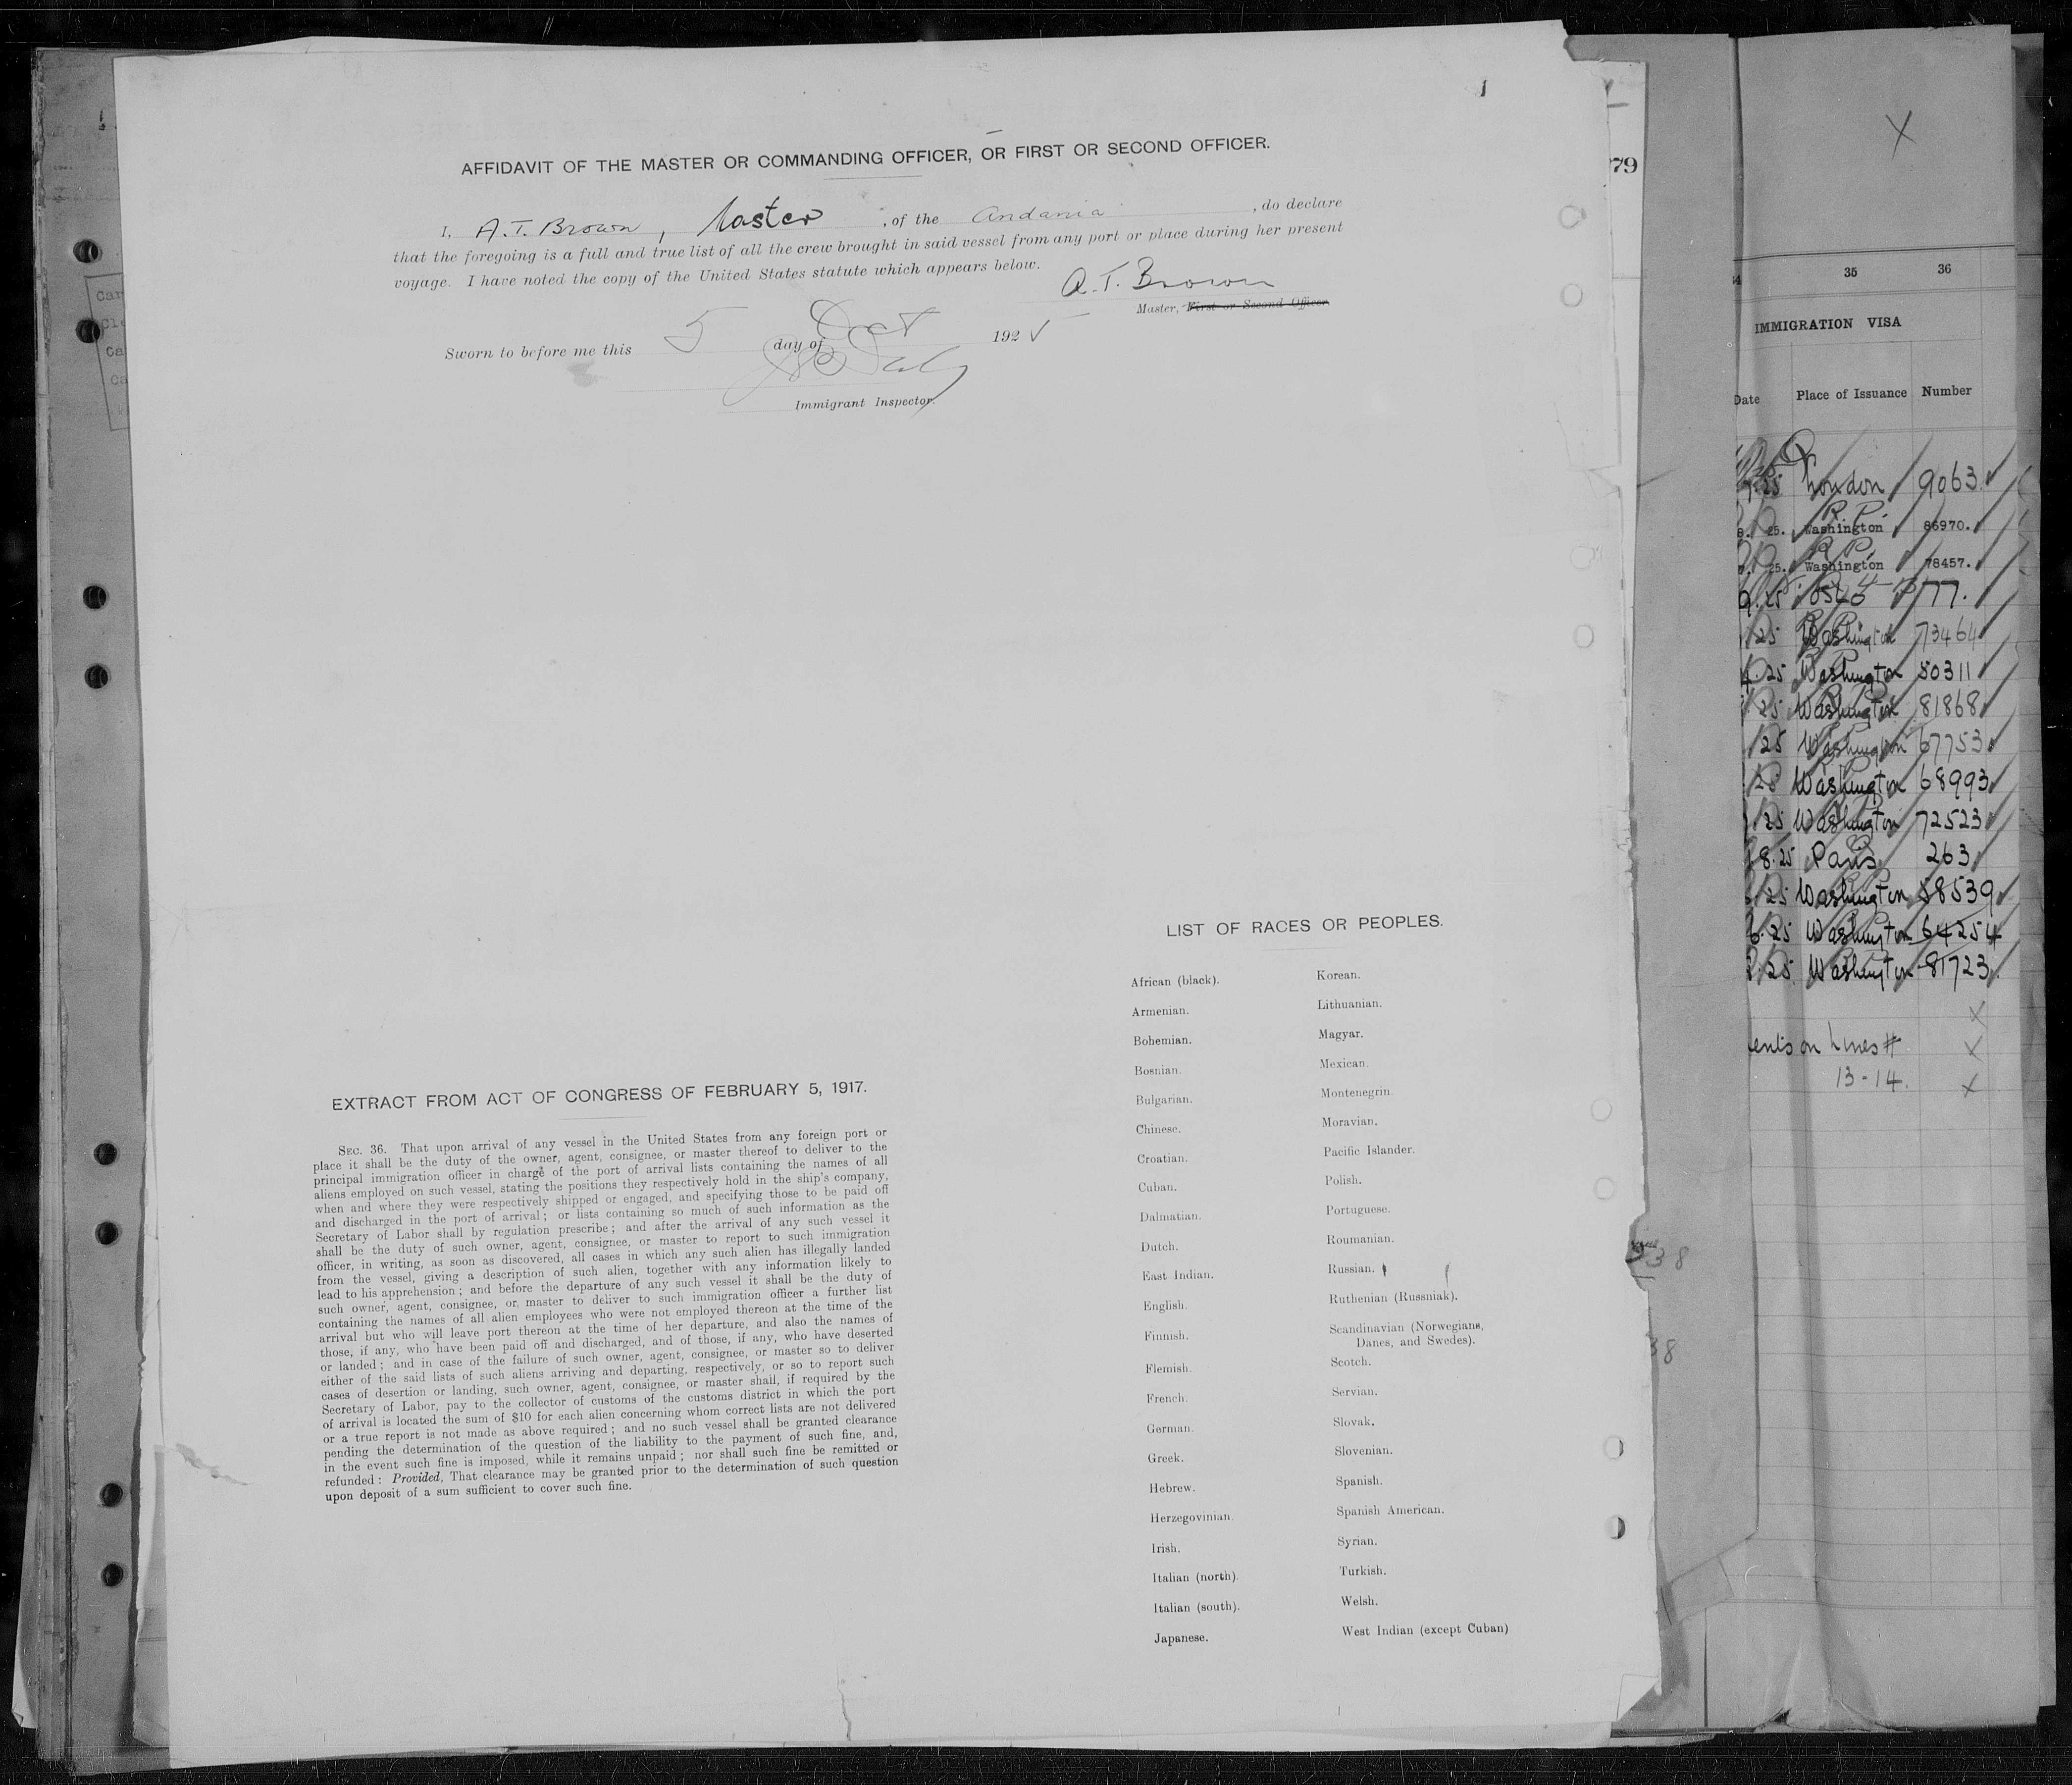 AFFIDAVIT OF THE MASTER OR COMMANDING OFFICER, OR FIRST OR SECOND OFFICER.
I, A. T. Brown, Master, of the Andania, do declare
that the foregoing is a full and true list of all the crew brought in said vessel from any port or place during her present
voyage. I have noted the copy of the United States statute which appears below.
A. T. Brown
Master, First or Second Officer.
Sworn to before me this 5 day of Oct 1925
Immigrant Inspector.
EXTRACT FROM ACT OF CONGRESS OF FEBRUARY 5, 1917.
SEC. 36. That upon arrival of any vessel in the United States from any foreign port or
place it shall be the duty of the owner, agent, consignee, or master thereof to deliver to the
principal immigration officer in charge of the port of arrival lists containing the names of all
aliens employed on such vessel, stating the positions they respectively hold in the ship's company,
when and where they were respectively shipped or engaged, and specifying those to be paid off
and discharged in the port of arrival; or lists containing so much of such information as the
Secretary of Labor shall by regulation prescribe; and after the arrival of any such vessel it
shall be the duty of such owner, agent, consignee, or master to report to such immigration
officer, in writing, as soon as discovered, all cases in which any such alien has illegally landed
from the vessel, giving a description of such alien, together with any information likely to
lead to his apprehension; and before the departure of any such vessel it shall be the duty of
such owner, agent, consignee, or master to deliver to such immigration officer a further list
containing the names of all alien employees who were not employed thereon at the time of the
arrival but who will leave port thereon at the time of her departure, and also the names of
those, if any, who have been paid off and discharged, and of those, if any, who have deserted
or landed; and in case of the failure of such owner, agent, consignee, or master so to deliver
either of the said lists of such aliens arriving and departing, respectively, or so to report such
cases of desertion or landing, such owner, agent, consignee, or master shall, if required by the
Secretary of Labor, pay to the collector of customs of the customs district in which the port
of arrival is located the sum of $10 for each alien concerning whom correct lists are not delivered
or a true report is not made as above required; and no such vessel shall be granted clearance
pending the determination of the question of the liability to the payment of such fine, and,
in the event such fine is imposed, while it remains unpaid; nor shall such fine be remitted or
refunded: Provided, That clearance may be granted prior to the determination of such question
upon deposit of a sum sufficient to cover such fine.
LIST OF RACES OR PEOPLES.
African (black).
Armenian.
Bohemian.
Bosnian.
Bulgarian.
Chinese.
Croatian.
Cuban.
Dalmatian.
Dutch.
East Indian.
English.
Finnish.
Flemish.
French.
German.
Greek.
Hebrew.
Herzegovinian.
Irish.
Italian (north).
Italian (south).
Japanese.
Korean.
Lithuanian.
Magyar.
Mexican.
Montenegrin.
Moravian.
Pacific Islander.
Polish.
Portuguese.
Roumanian.
Russian.
Ruthenian (Russniak).
Scandinavian (Norwegians,
Danes, and Swedes).
Scotch.
Servian.
Slovak.
Slovenian.
Spanish.
Spanish American.
Syrian.
Turkish.
Welsh.
West Indian (except Cuban)
79
X
35 36
IMMIGRATION VISA
Date Place of Issuance Number
25 London 9063
25. R.P. Washington 86970.
25. R.P. Washington 78457.
9.25 Oslo 177.
25 Washington 73464
4.25 Washington 50311
25 Washington 81868
25 Washington 67753
25 Washington 68993
25 Washington 72523
8.25 Paris 263
25 Washington 58539
6.25 Washington 64254
25 Washington 81723
X
on Lines # X
13-14. X
38
38